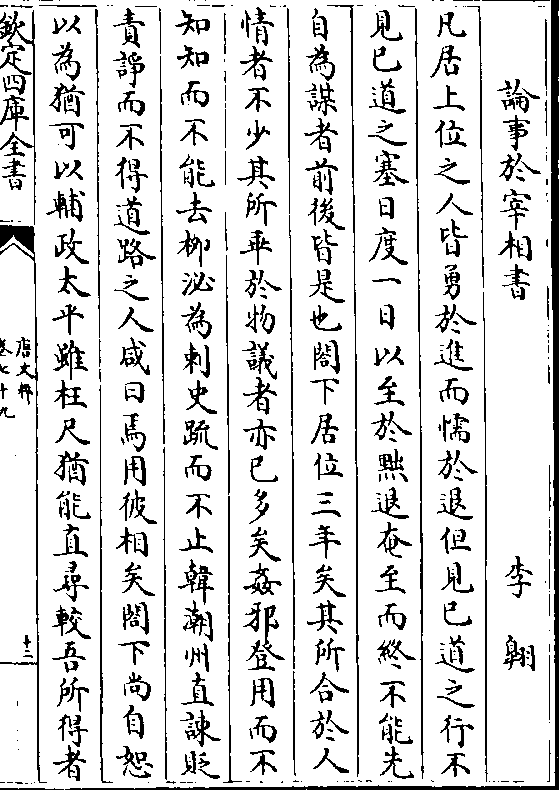 論事於宰相書
李翺
凡居上位之人皆勇於進而懦於退但見已道之行不
見已道之塞日度一日以至於黜退奄至而終不能先
自為謀者前後皆是也閤下居位三年矣其所合於人
情者不少其所乖於物議者亦已多矣姦邪登用而不
知知而不能去栁泌為刺史疏而不止韓潮州直諫貶
責諍而不得道路之人咸曰焉用彼相矣閤下尚自恕
以為猶可以輔政太平雖枉尺猶能直尋較吾所得者
欽定四庫全書
唐文粹
卷七十九
十三